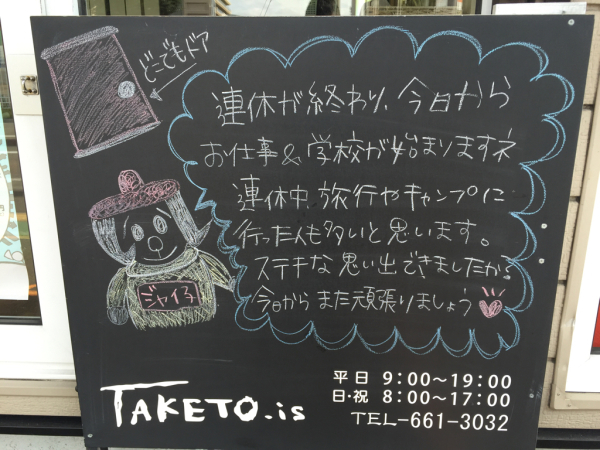 どこでもドア
連休が終わり、今日から
お仕事&学校が始まりますネ
連休中、旅行やキャンプに
行った人も多いと思います。
ステキな思い出できましたか?
今日からまた頑張りましょう
ジャイ子
TAKETO.is
平日 9:00〜19:00
日・祝 8:00〜17:00
TEL-661-3032